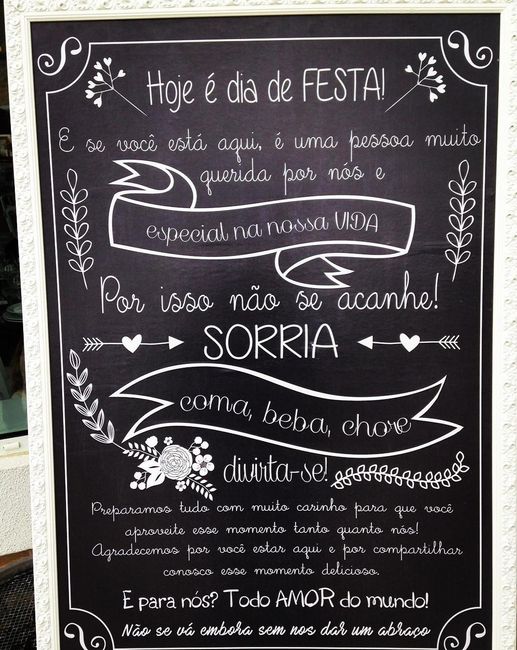 Hoje é dia de FESTA!
E se você está aqui, é uma pessoa muito
querida por nós e
especial na nossa VIDA
Por isso não se acanhe!
SORRIA
coma, beba, chore
divirta-se!
Preparamos tudo com muito carinho para que você
aproveite esse momento tanto quanto nós!
Agradecemos por você estar aqui e por compartilhar
conosco esse momento delicioso.
E para nós? Todo AMOR do mundo!
Não se vá embora sem nos dar um abraço